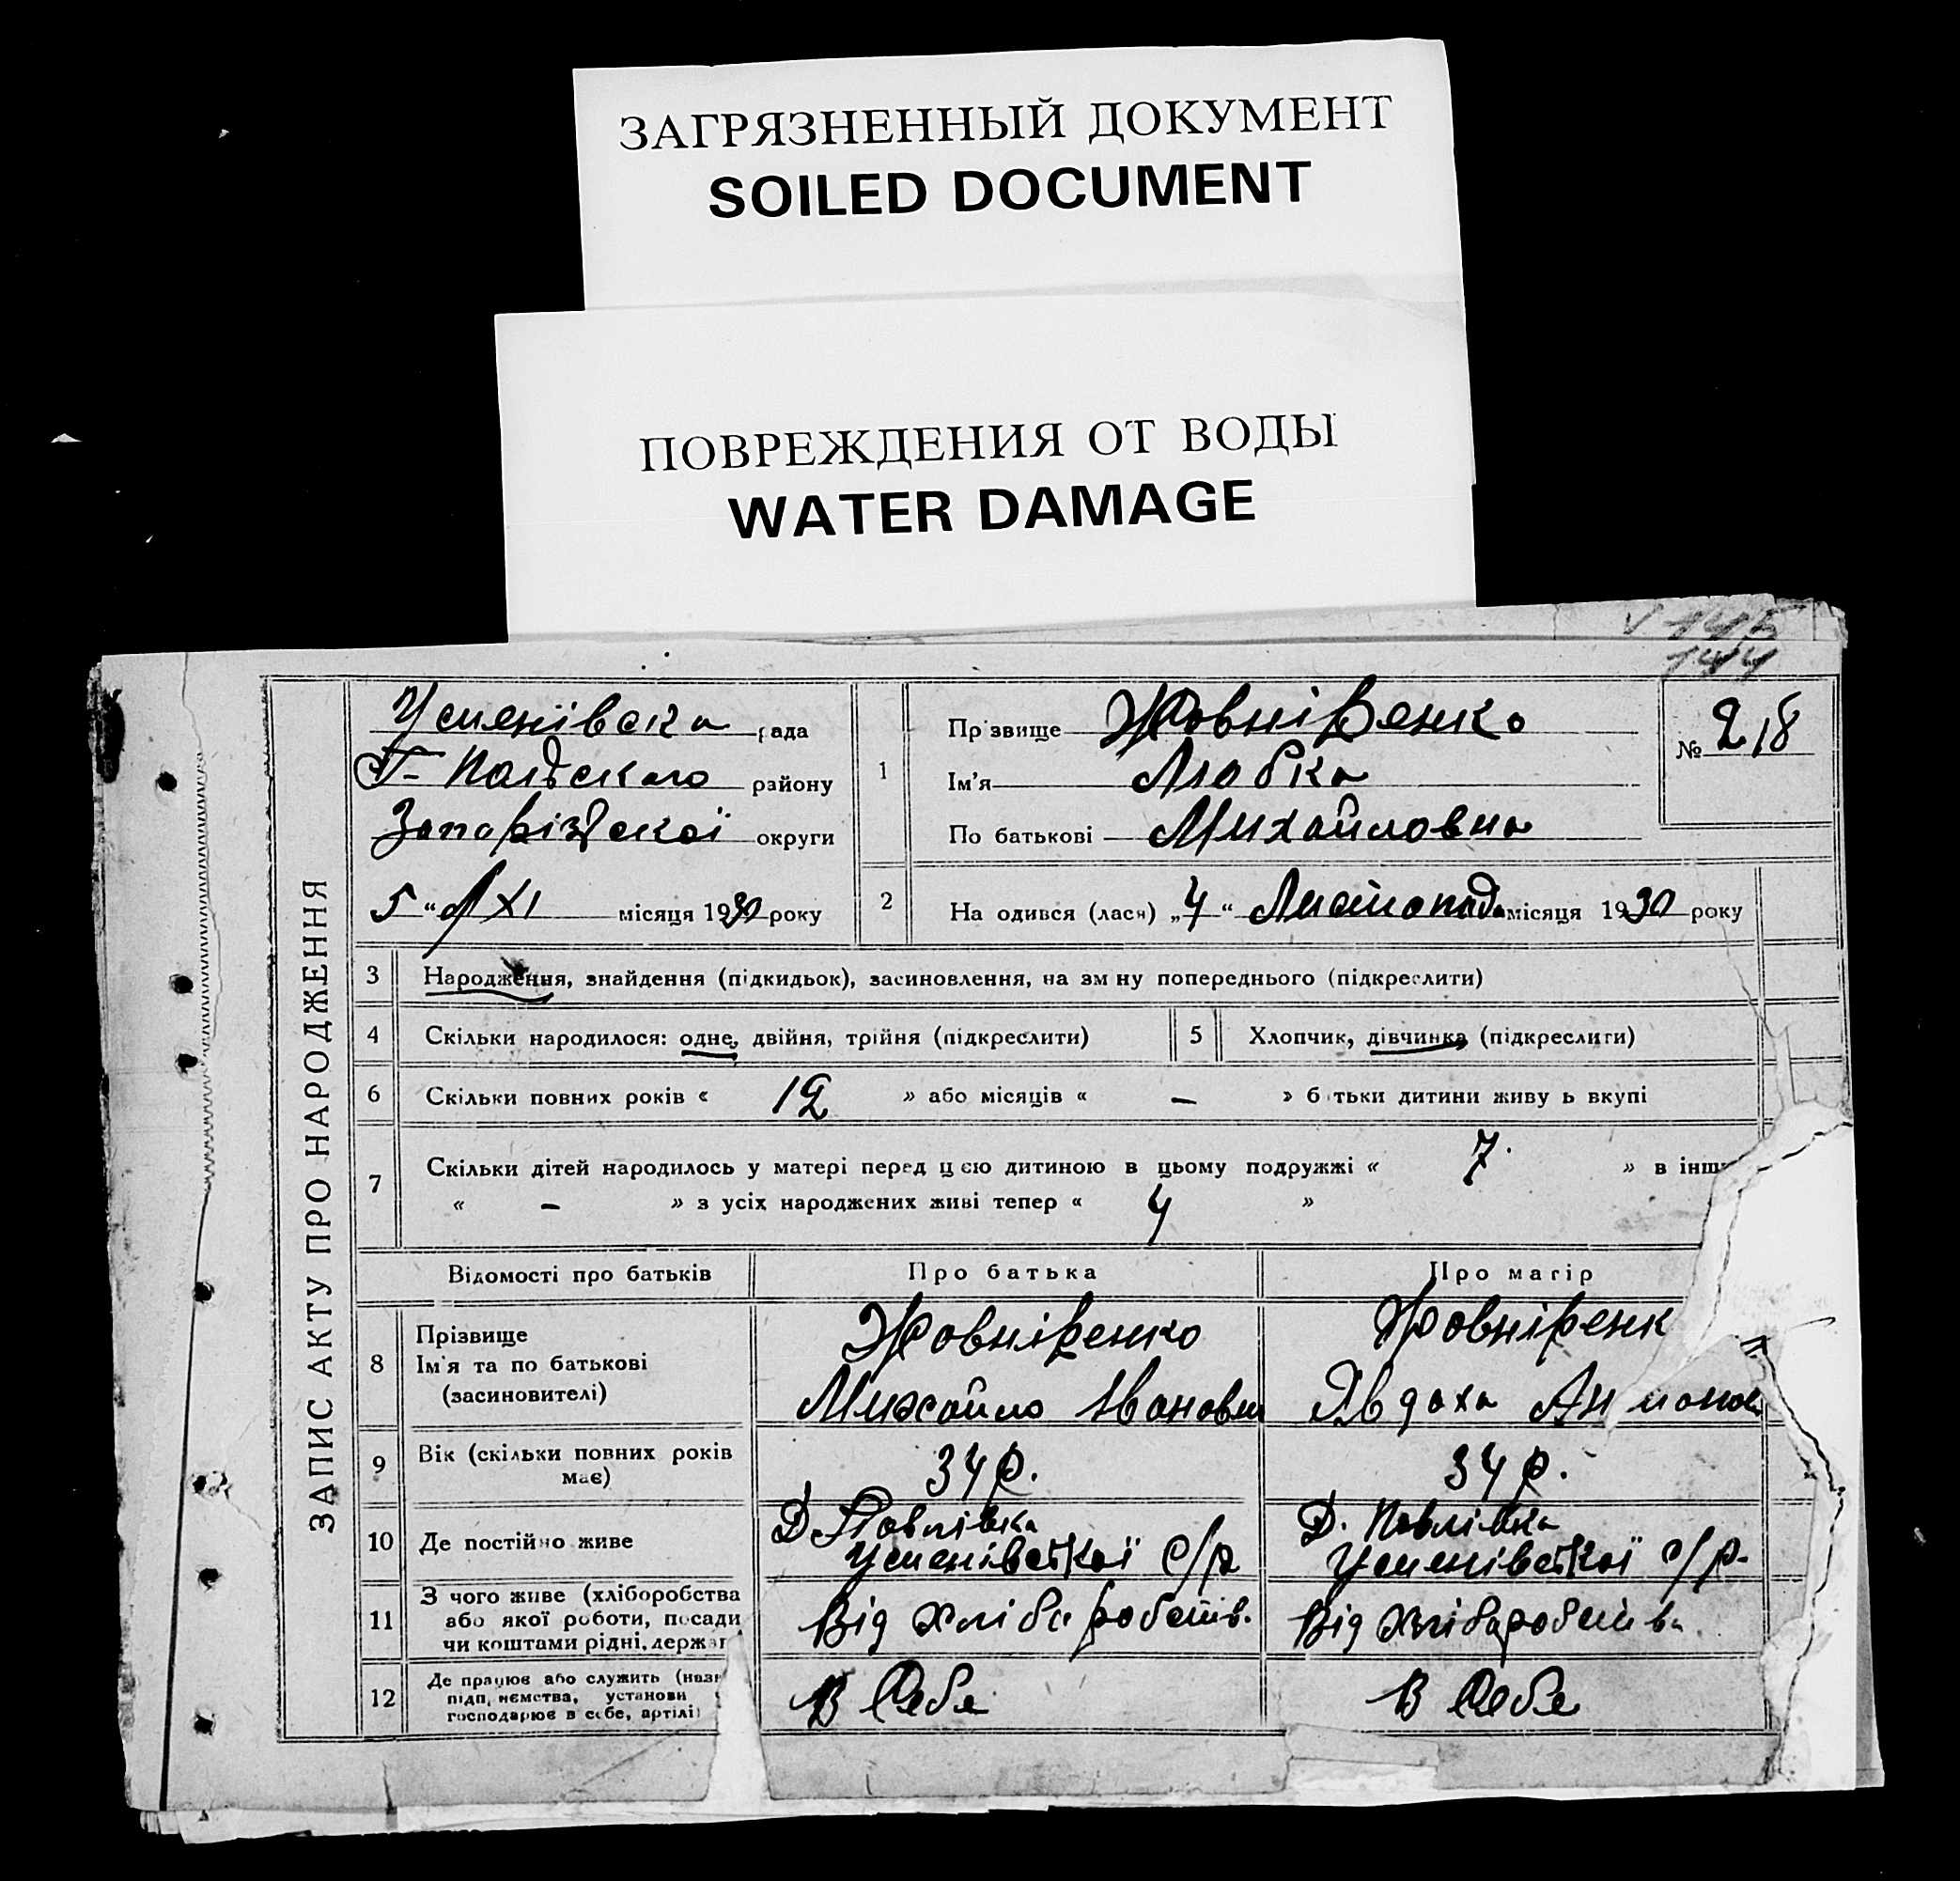 ЗАГРЯЗНЕННЫЙ ДОКУМЕНТ
SOILED DOCUMENT
ПОВРЕЖДЕНИЯ ОТ ВОДЫ
WATER DAMAGE
V 145
144
ЗАПИС АКТУ ПРО НАРОДЖЕННЯ
Успенівська рада
Г-Польского району
Запорізької округи
5 " XI місяця 1930 року
1
Прізвище Жовніренко
Ім'я Любка
По батькові Михайловна
№ 218
2 На одився (лася) „4“ Листопада місяця 1930 року
3 Народження, знайдення (підкидьок), засиновлення, на зм ну попереднього (підкреслити)
4 Скільки народилося: одне, двійня, трійня (підкреслити)
5 Хлопчик, дівчинка (підкреслити)
6 Скільки повних років « 12 » або місяців « – » б тьки дитини живу ь вкупі
7 Скільки дітей народилось у матері перед цією дитиною в цьому подружжі « 7. » в інш
« – » з усіх народжених живі тепер « 4 »
Відомості про батьків Про батька Про матір
8 Прізвище
Ім'я та по батькові
(засиновителі)
Жовніренко
Михайло Іванович
Жовніренк
Явдоха Антонов
9 Вік (скільки повних років
має)
34 р.
34 р.
10 Де постійно живе
Д. Павлівка
Успенівської с/р
Д. Павлівка
Успенівської с/р.
11 З чого живе (хліборобства
або якої роботи, посади
чи коштами рідні, держав
Від хліборобств.
Від хліборобства.
12 Де працює або служить (назв
підп, иємства, установи
господарює в себе, артілі)
В себе
В себе